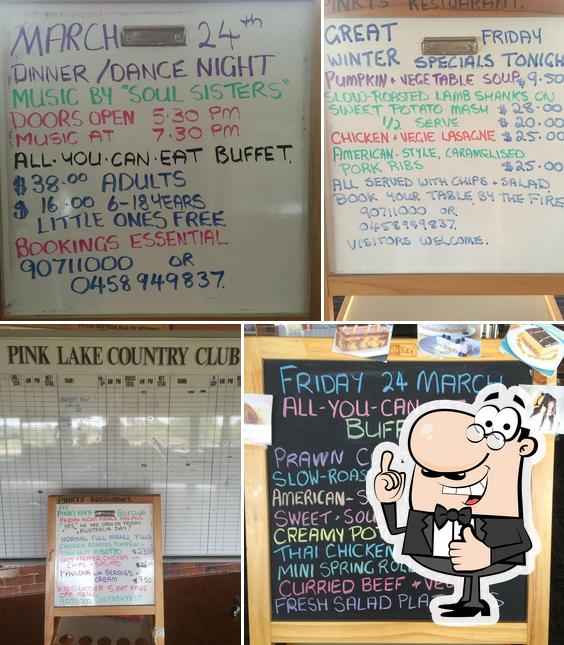 MARCH 24th
DINNER/DANCE NIGHT
MUSIC BY "SOUL SISTERS"
DOORS OPEN 5.30 PM
MUSIC AT 7.30 PM
ALL.YOU.CAN.EAT BUFFET.
$38.00 ADULTS
$16.00 6-18 YEARS
LITTLE ONES FREE
BOOKINGS ESSENTIAL
90711000 OR
0458949837.
PINKYS RESTUARANT.
GREAT FRIDAY
WINTER SPECIALS TONIGH
PUMPKIN & VEGETABLE SOUP $9.50
SLOW-ROASTED LAMB SHANKS ON
SWEET POTATO MASH $28.00
1/2 SERVE $20.00
CHICKEN & VEGIE LASAGNE $25.00
AMERICAN-STYLE, CARAMELISED
PORK RIBS $25.00
ALL SERVED WITH CHIPS & SALAD
BOOK YOUR TABLE BY THE FIRE
90711000 OR
0458949837.
VISITORS WELCOME.
PINK LAKE COUNTRY CLUB
PINKYS RESTAURANT.
AT
PINK LAKE GOLF CLUB
FRIDAY NIGHT MEALS
"YES" WE ARE OPEN ON FRIDAY
"AUSTRALIA DAY"
NORMAL FULL MENU, PLUS
CHICKEN ROASTED PUMPKIN &
RISOTTO $23.50
SALT & PEPPER CHICKEN
CHIPS & SALAD
PAVLOVA BERRIES &
CREAM $9.50
KIDS UNDER 5, EAT FREE
OFF MENU
90711000 0458949837
FRIDAY 24 MARCH
ALL-YOU-CAN
BUFF
PRAWN C
SLOW-ROAS
AMERICAN-S
SWEET & SOU
CREAMY POT
THAI CHICKEN
MINI SPRING ROLL
CURRIED BEEF & VEG
FRESH SALAD PLA S